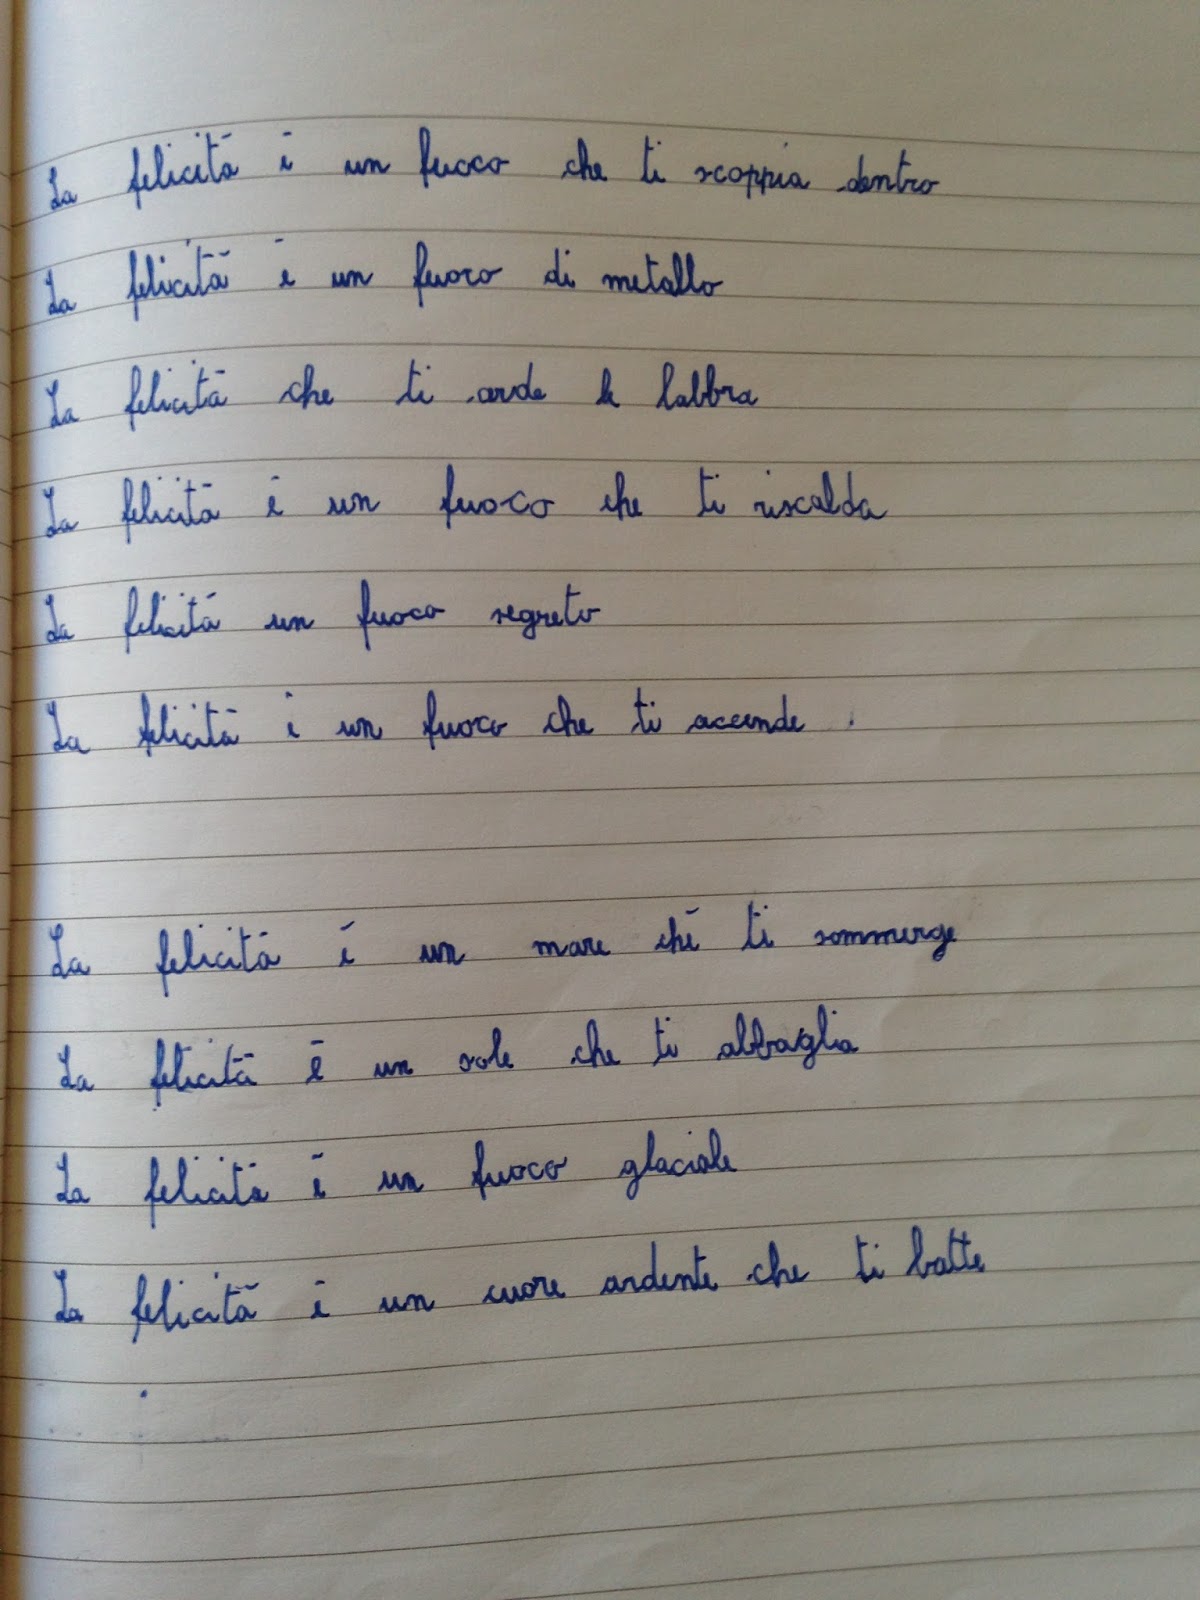 La felicità è un fuoco che ti scoppia dentro
La felicità è un fuoco di metallo
La felicità che ti arde le labbra
La felicità è un fuoco che ti riscalda
La felicità un fuoco segreto
La felicità è un fuoco che ti accende.
La felicità è un mare ché ti sommerge
La felicità è un sole che ti abbaglia
La felicità è un fuoco glaciale
La felicità è un cuore ardente che ti batte